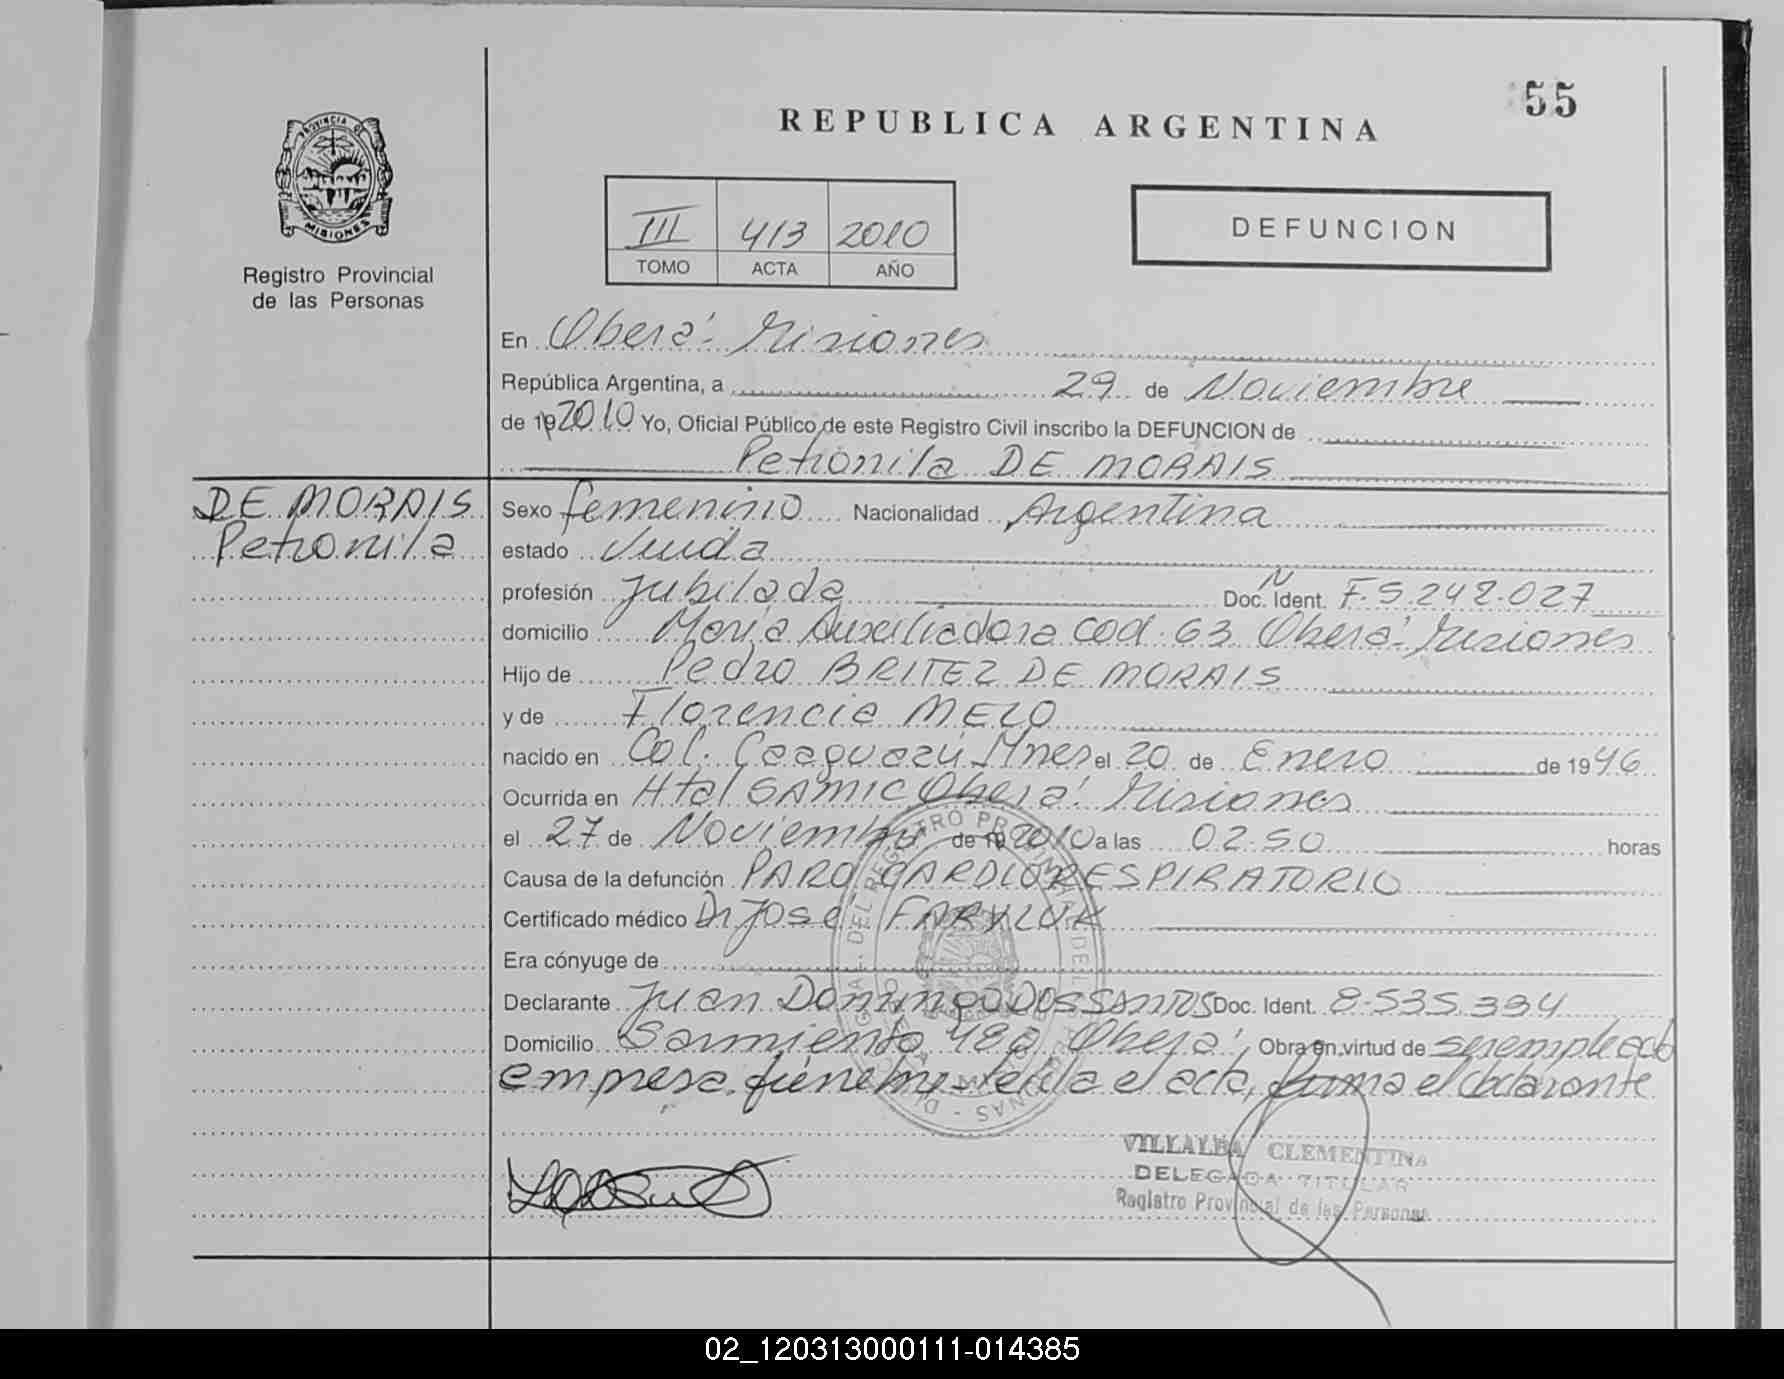 55
REPUBLICA ARGENTINA
PROVINCIA DE
MISIONES
Registro Provincial
de las Personas
III 413 2010
TOMO ACTA AÑO
DEFUNCION
En Oberá - Misiones
República Argentina, a 29 de Noviembre
de 19 2010 Yo, Oficial Público de este Registro Civil inscribo la DEFUNCION de
Petronila DE MORAIS
DE MORAIS
Petronila
Sexo femenino Nacionalidad Argentina
estado Viuda
profesión Jubilada Doc. Ident. F. 5.242.027
domicilio María Auxiliadora cod. 63 Oberá - Misiones
Hijo de Pedro BRITEZ DE MORAIS
y de Florencia MELO
nacido en Col. Caaguazú Mnes el 20 de Enero de 1946
Ocurrida en Htal SAMIC Oberá - Misiones
el 27 de Noviembre de 19 2010 a las 02.50 horas
Causa de la defunción PARO CARDIORESPIRATORIO
Certificado médico Dr José FARYLUK
Era cónyuge de
Declarante Juan Domingo DOS SANTOS Doc. Ident. 8.535.334
Domicilio Sarmiento Oberá, Obra en virtud de ser empleado
empresa fúnebre - Leída el acta, firma el declarante
VILLALBA CLEMENTINA
DELEGADA TITULAR
Registro Provincial de las Personas
02_120313000111-014385